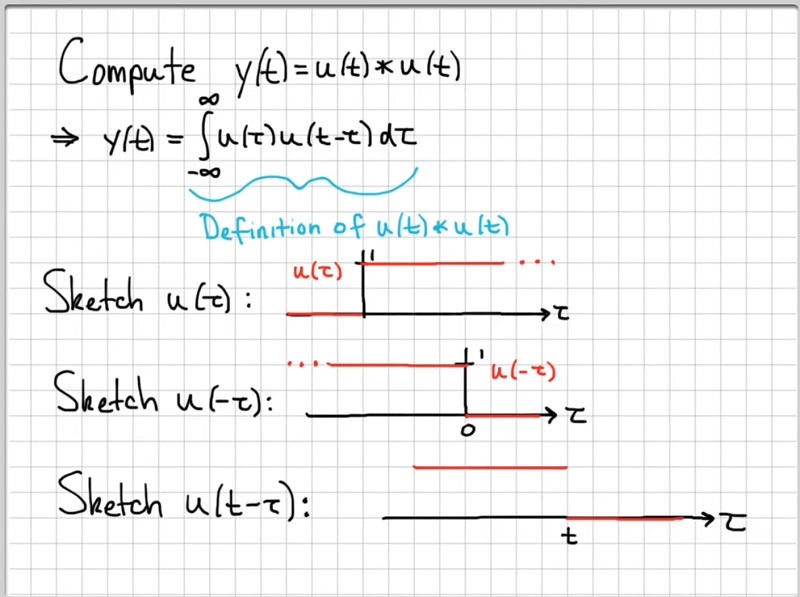 Compute y(t) = u(t) * u(t)
⇒ y(t) = ∫_{-∞}^{∞} u(τ) u(t-τ) dτ
Definition of u(t) * u(t)
u(τ) 1 ...
Sketch u(τ): τ
... 1 u(-τ)
Sketch u(-τ): τ
0
Sketch u(t-τ): τ
t